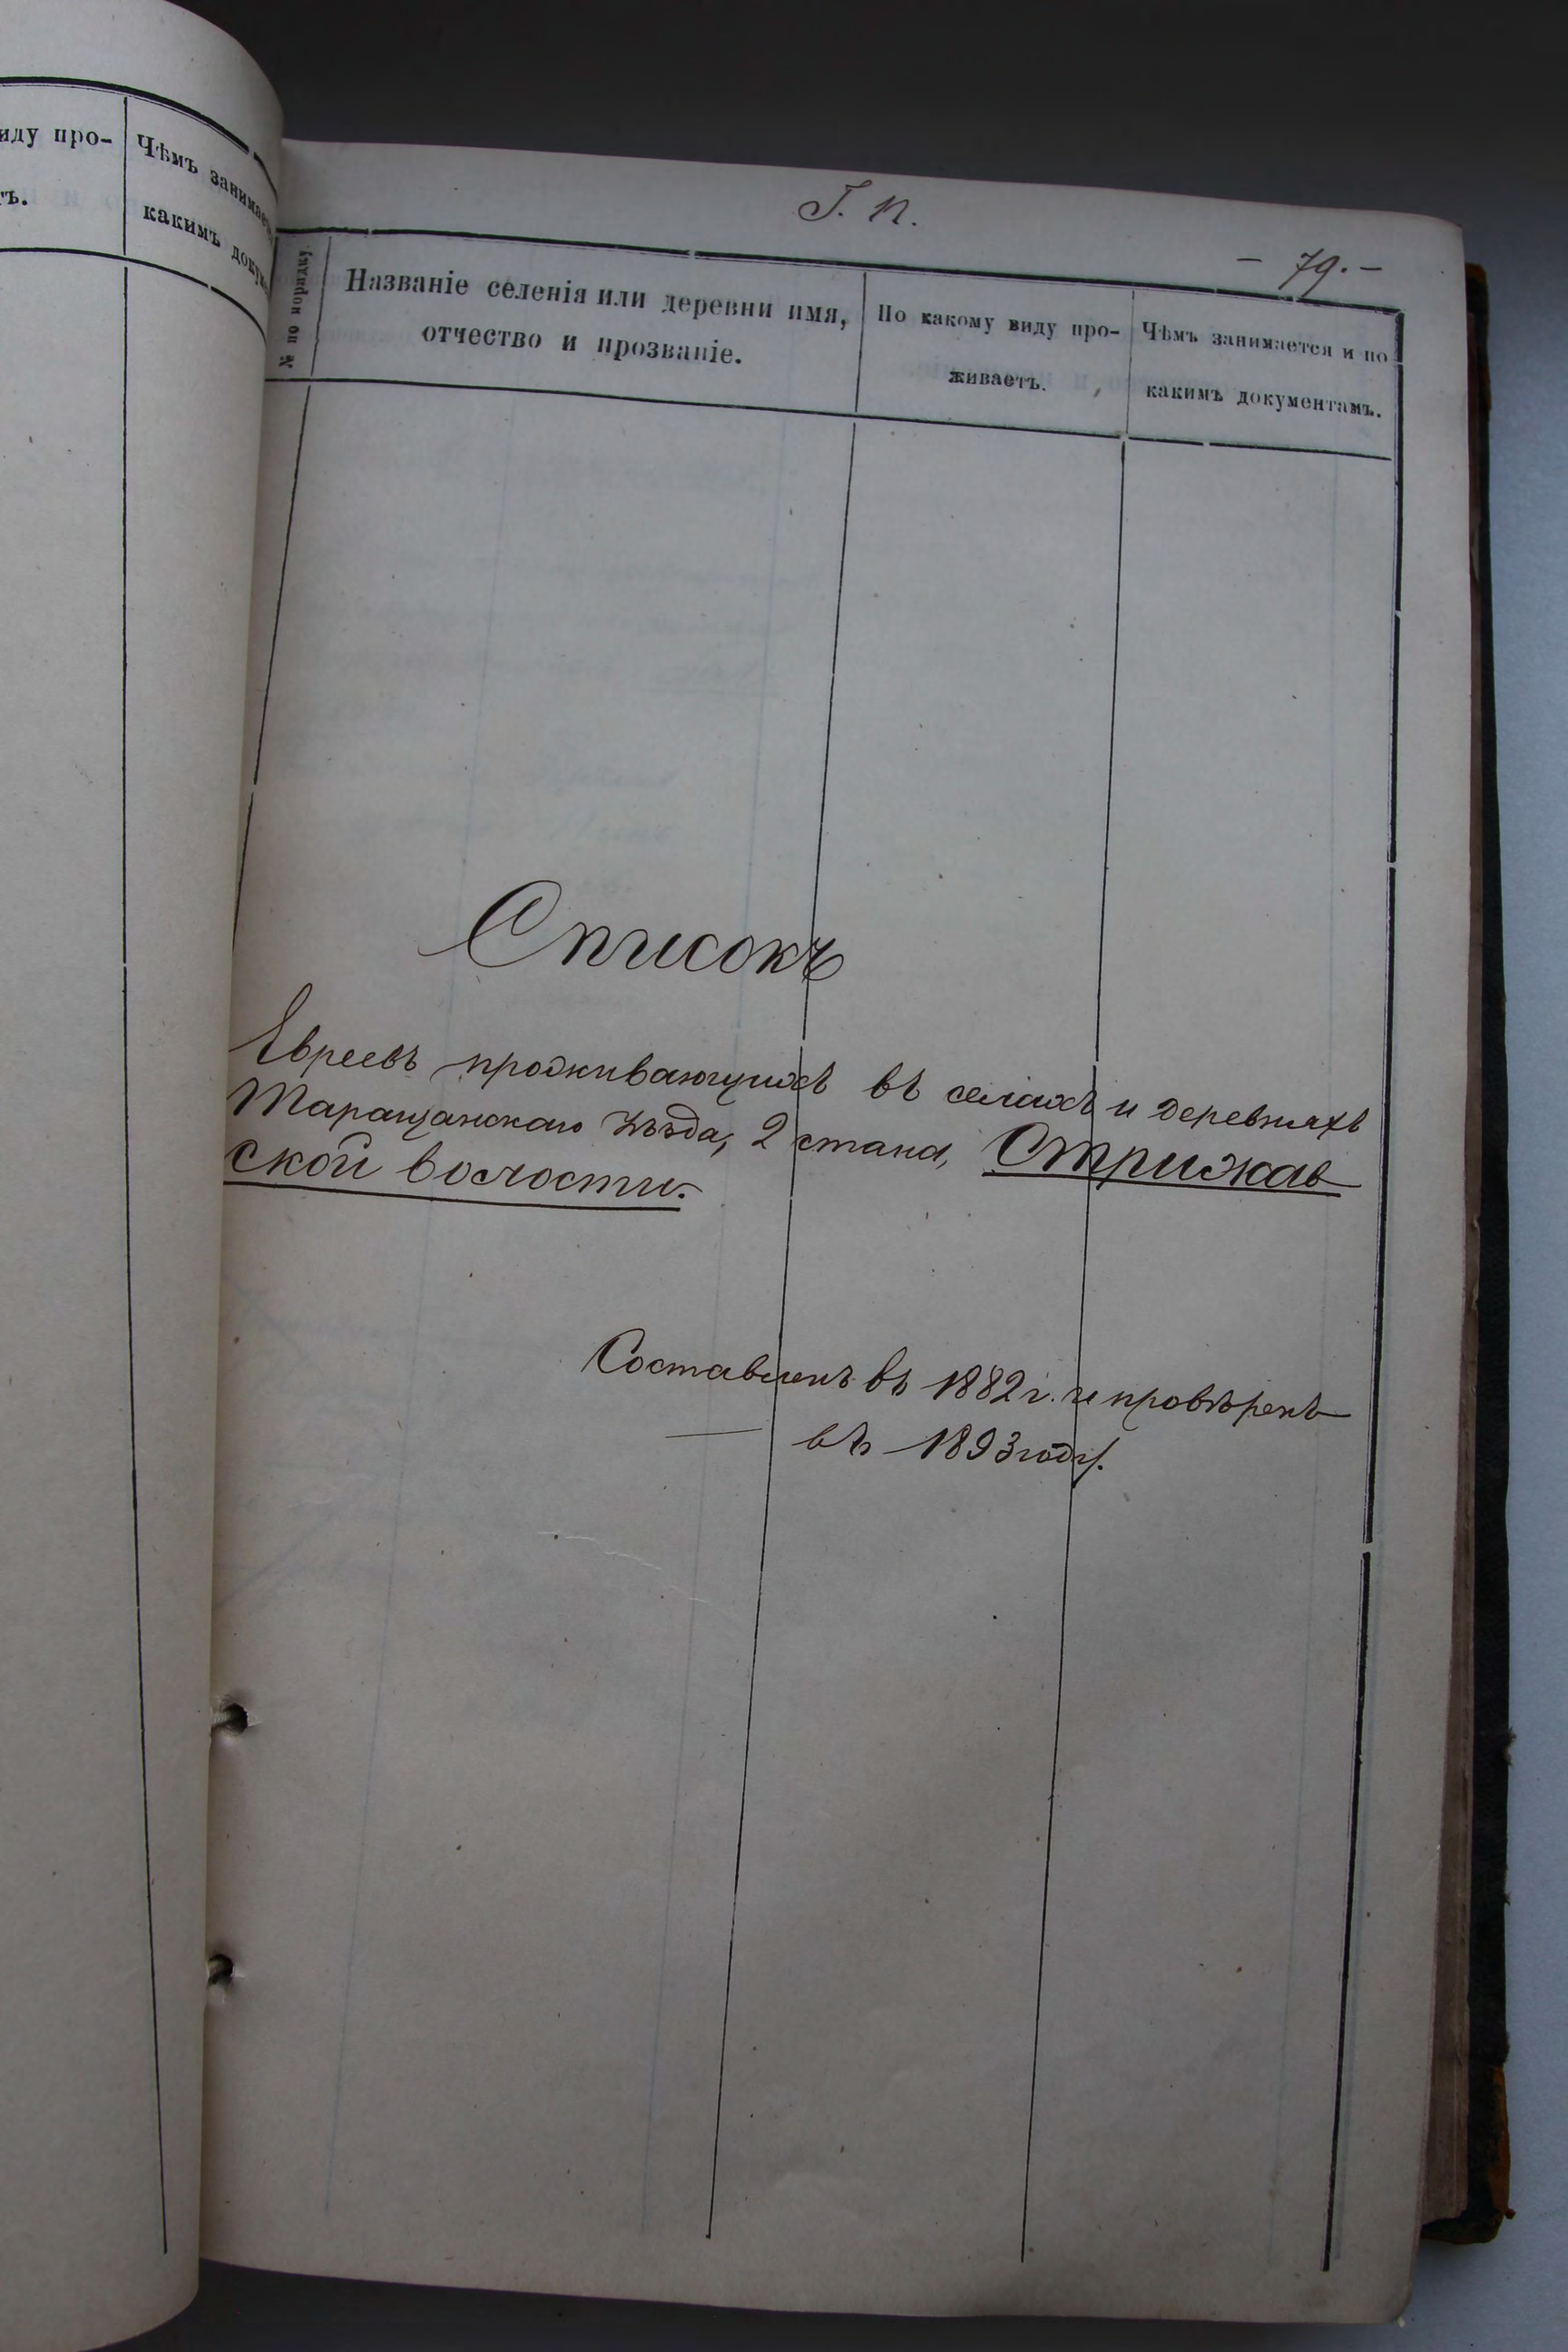 иду про-
тъ.
Чѣмъ занимает
какимъ докум
Г. П.
- 79. -
№ по порядку.
Названіе селенія или деревни имя,
отчество и прозваніе.
По какому виду про-
живаетъ.
Чѣмъ занимается и по
какимъ документамъ.
Списокъ
Евреевъ проживающихъ въ селахъ и деревняхъ
Таращанскаго уѣзда, 2 стана, Стрижав
ской волости.
Составленъ въ 1882 г. и провѣренъ
въ 1893 году.